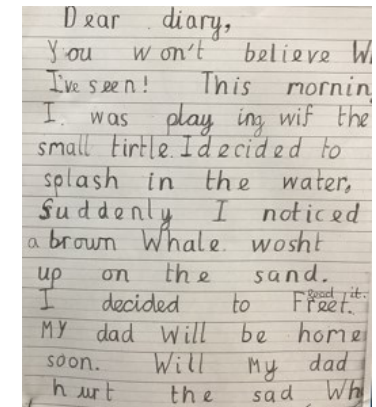 Dear diary,
You won't believe W
I've seen! This mornin
I. was play ing wif the
small tirtle. I decided to
splash in the water,
Suddenly I noticed
a brown Whale. wosht
up on the sand.
I decided to it.
My dad will be home
soon. Will My dad
hurt the sad Wh